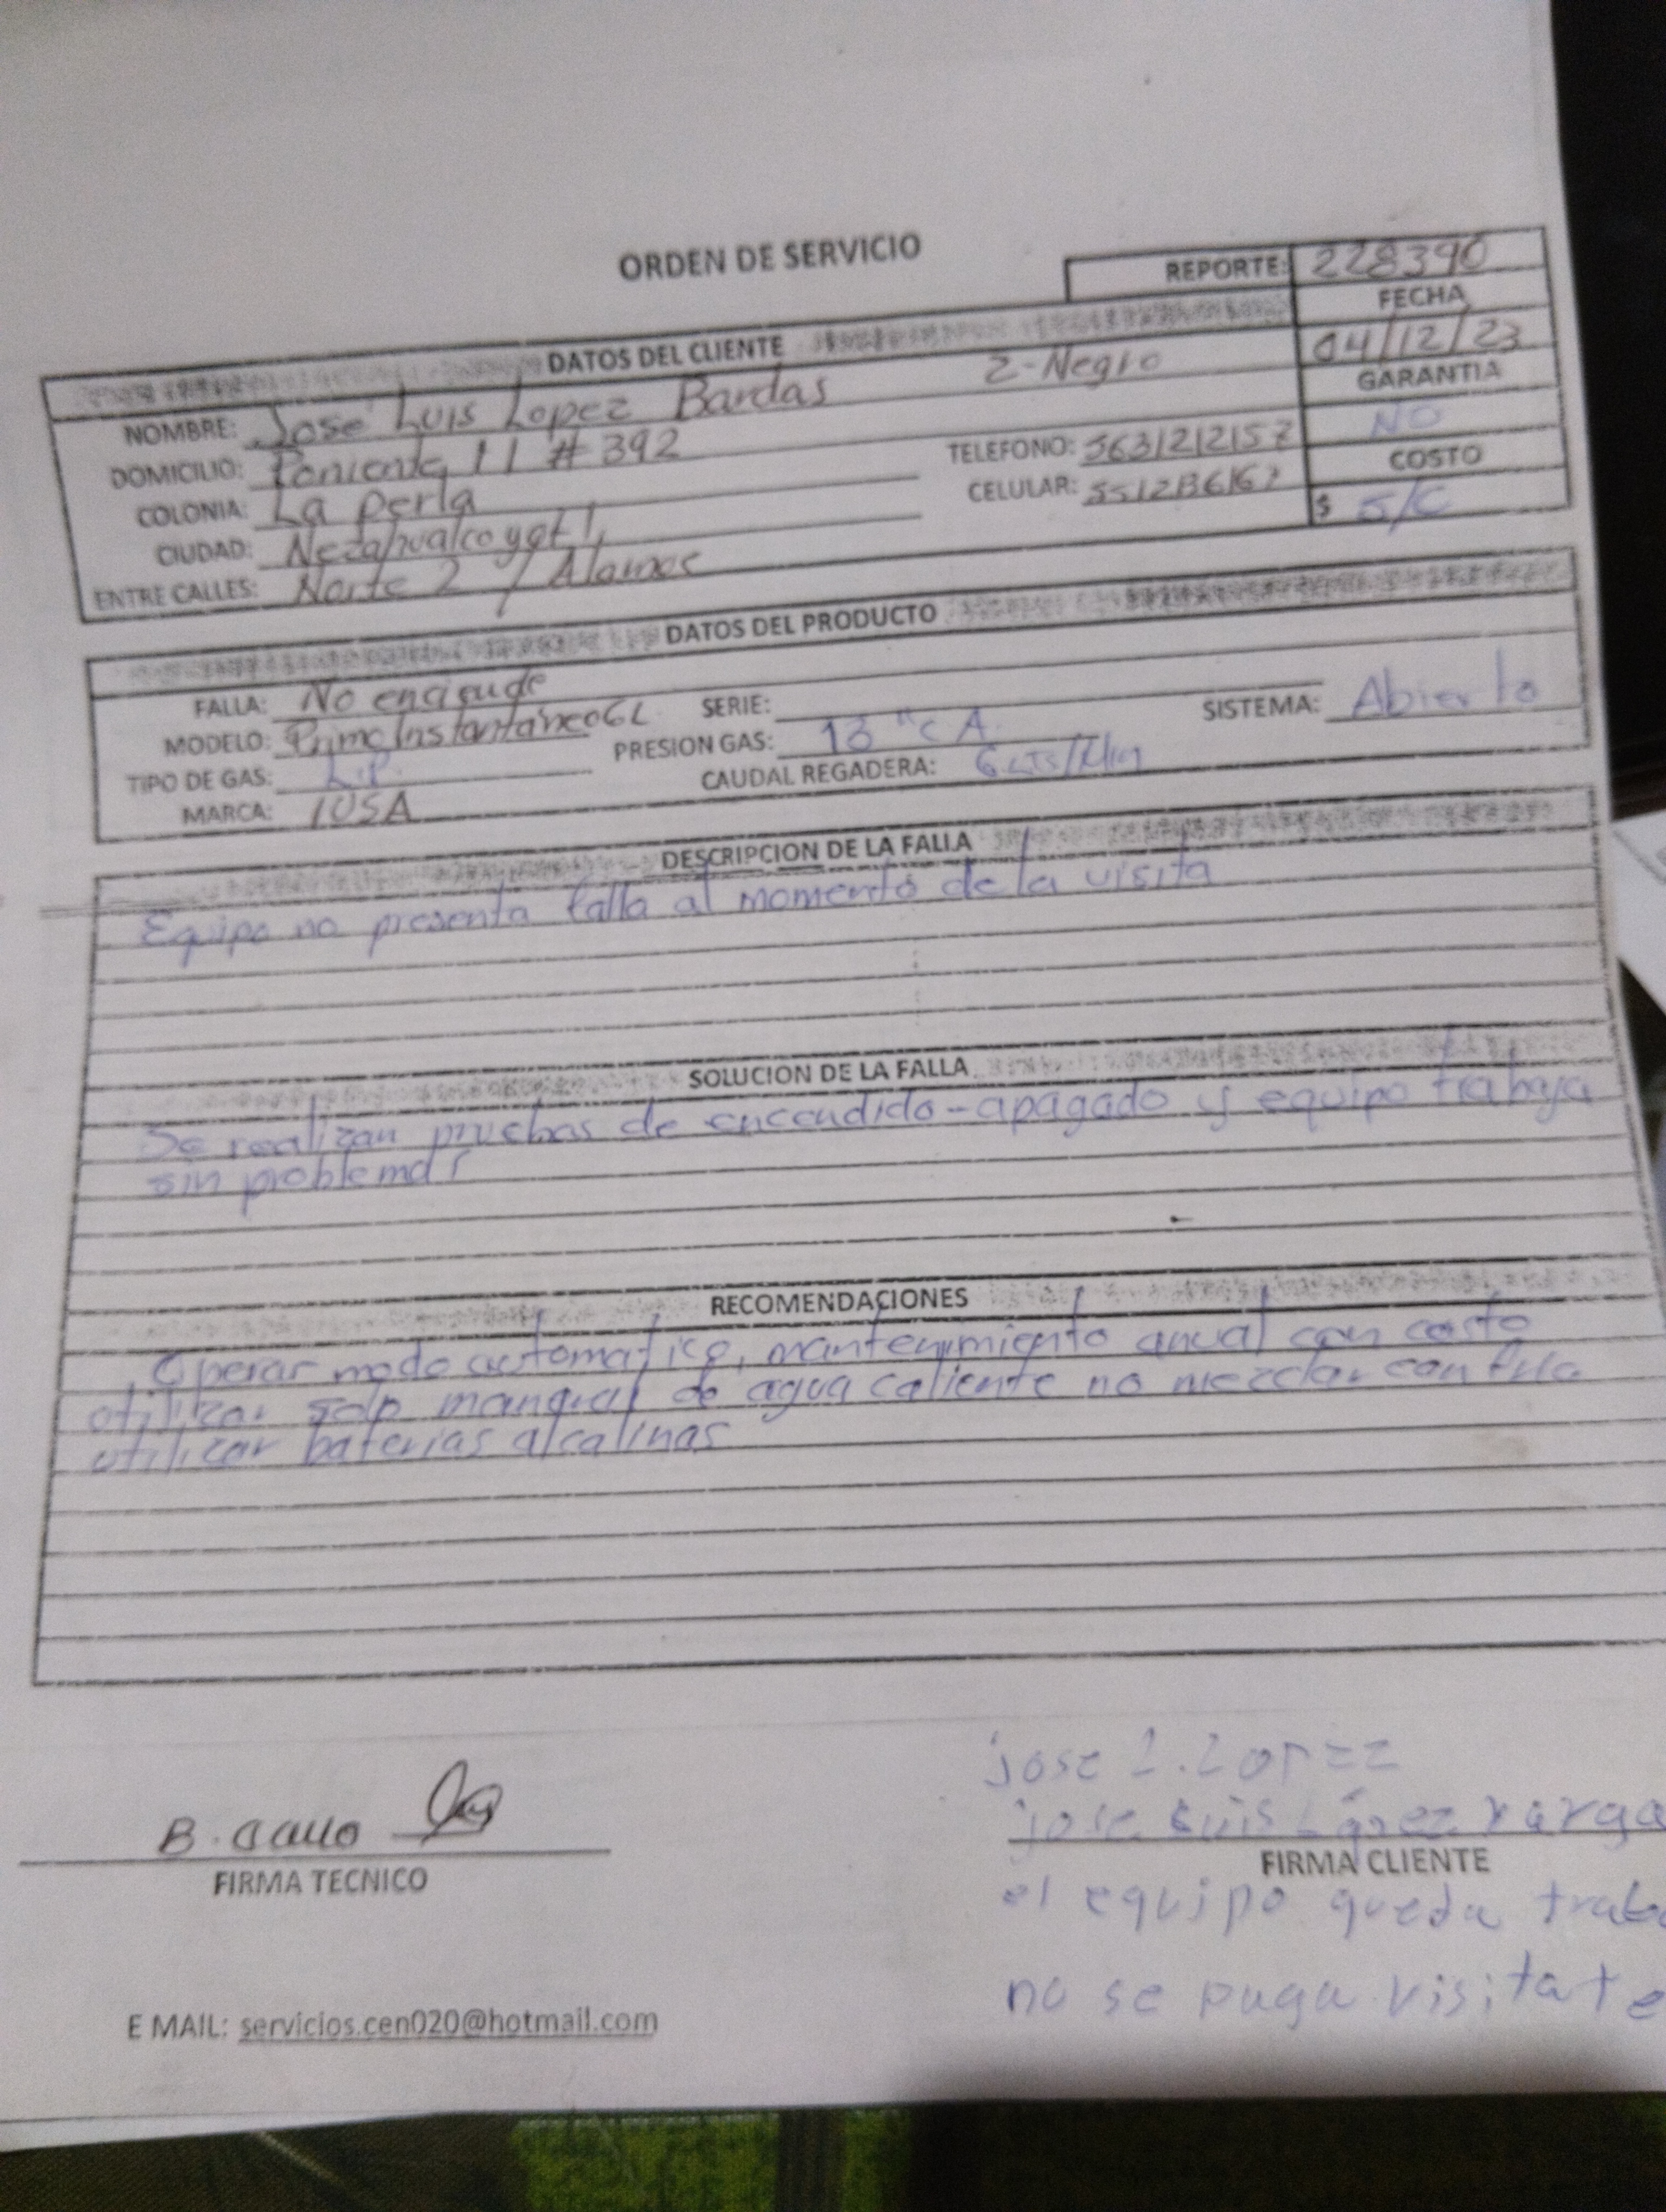 ORDEN DE SERVICIO
REPORTE: 228390
FECHA
04/12/23
DATOS DEL CLIENTE
GARANTIA
NO
NOMBRE: José Luis Lopez Bardas Z-Negro
DOMICILIO: Poniente 11 # 392
TELEFONO: 5631212157
COLONIA: La perla
CELULAR:
COSTO
$ S/C
CIUDAD: Nezahualcoyotl,
ENTRE CALLES: Norte 2 / Alamos
DATOS DEL PRODUCTO
FALLA: No enciende
SERIE:
SISTEMA: Abierto
MODELO: Prime Instantáneo 6L
PRESION GAS: 13 "C A
TIPO DE GAS: L.P.
CAUDAL REGADERA: 6 LTS/Min
MARCA: IUSA
DESCRIPCION DE LA FALLA
Equipo no presenta falla al momento de la visita
SOLUCION DE LA FALLA
Se realizan pruebas de encendido-apagado y equipo trabaja
sin problemas
RECOMENDACIONES
Operar modo automatico, mantenimiento anual con costo
utilizar solo manqral de agua caliente no mezclar con fria
utilizar baterias alcalinas
jose L. Lopez
B. Gallo
jose Luis López varga
FIRMA TECNICO
FIRMA CLIENTE
el equipo queda traba
no se paga visita te
E MAIL: servicios.cen020@hotmail.com